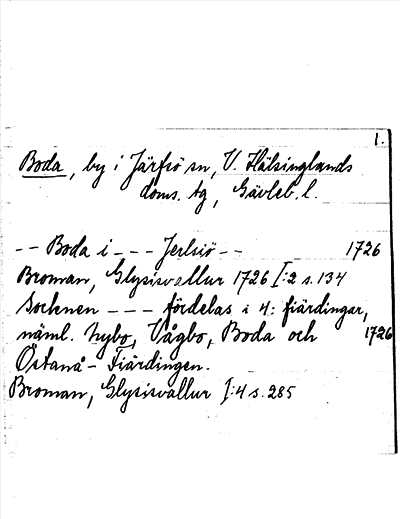 1.
Boda, by i Järfsö sn, V. Hälsinglands
doms. tg, Gävleb. l.
-- Boda i --- Jerlsiö -- 1726
Broman, Glysisvallur 1726 I:2 s. 134
Sochnen --- fördelas i 4: fiärdingar,
näml. Nybo, Vågbo, Boda och 1726
Östanå- Fiärdingen.
Broman, Glysisvallur I:4 s. 285